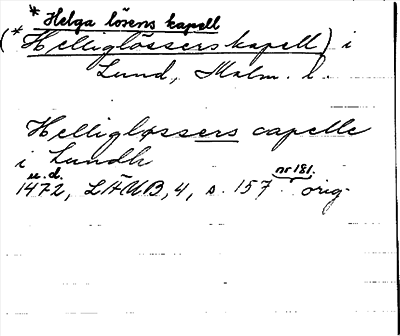 * Helga lösens kapell
(* Helliglössers kapell) i
Lund, Malm. l.
Helliglyssers capelle
i Lundh
u.d. nr 181.
1472, LÄUB, 4, s. 157 orig.